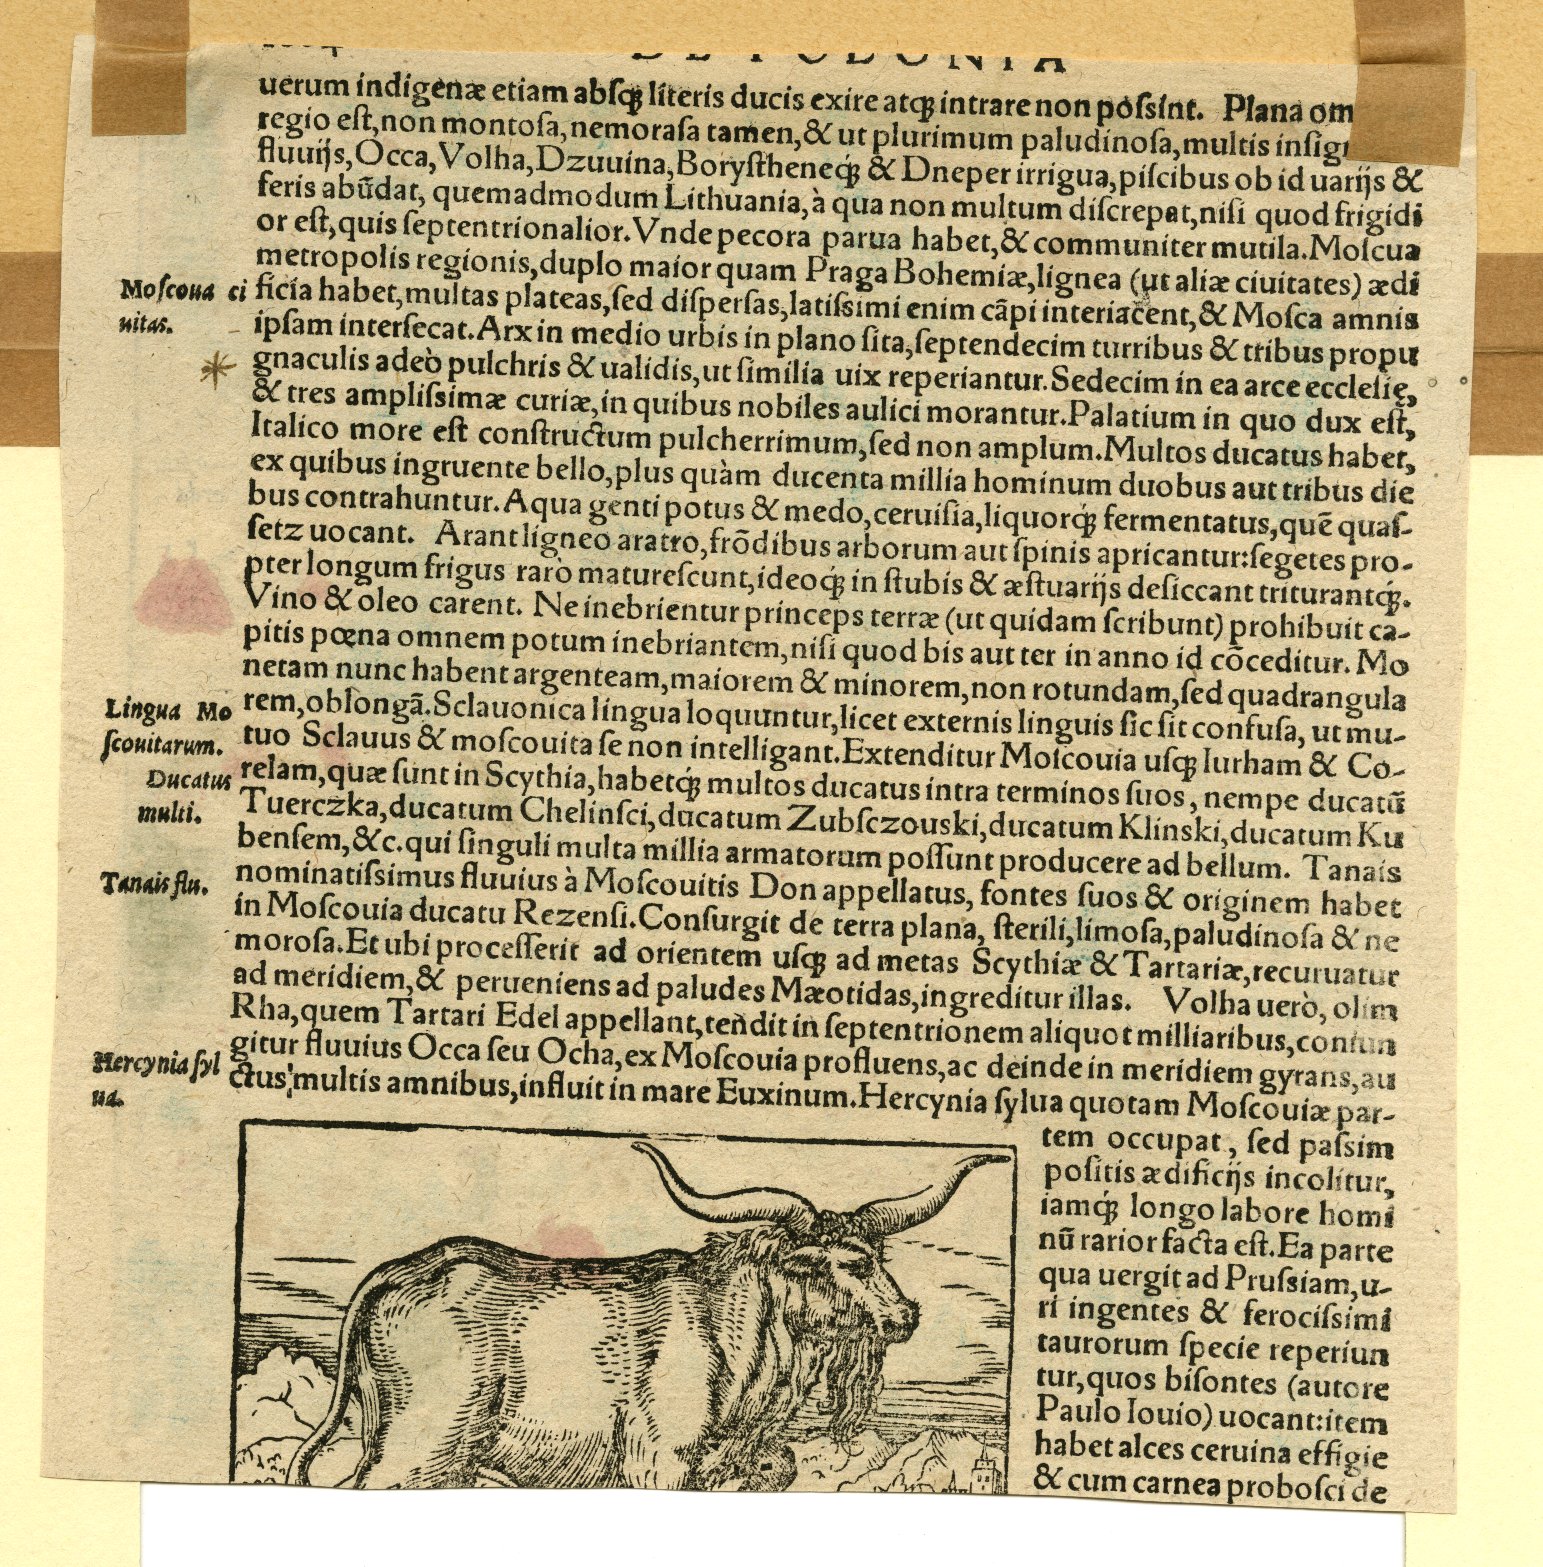 DE POLONIA
uerum indigenæ etiam absq́ literis ducis exire atq́ intrare non possint. Plana om
regio est, non montosa, nemorasa tamen, & ut plurimum paludinosa, multis insig
fluuijs, Occa, Volha, Dzuuina, Borystheneq́ & Dneper irrigua, piscibus ob id uarijs &
feris abūdat, quemadmodum Lithuania, à qua non multum discrepat, nisi quod frigidi
or est, quis septentrionalior. Vnde pecora parua habet, & communiter mutila. Moscua
metropolis regionis, duplo maior quam Praga Bohemiæ, lignea (ut aliæ ciuitates) ædi
Moscoua ci
uitas.
ficia habet, multas plateas, sed dispersas, latissimi enim cāpi interiacent, & Mosca amnis
ipsam intersecat. Arx in medio urbis in plano sita, septendecim turribus & tribus propu
gnaculis adeò pulchris & ualidis, ut similia uix reperiantur. Sedecim in ea arce ecclesię,
& tres amplissimæ curiæ, in quibus nobiles aulici morantur. Palatium in quo dux est,
Italico more est constructum pulcherrimum, sed non amplum. Multos ducatus habet,
ex quibus ingruente bello, plus quàm ducenta millia hominum duobus aut tribus die
bus contrahuntur. Aqua genti potus & medo, ceruisia, liquorq́ fermentatus, quē quas-
setz uocant. Arant ligneo aratro, frōdibus arborum aut spinis apricantur: segetes pro-
pter longum frigus raro maturescunt, ideoq́ in stubis & æstuarijs desiccant triturantq́.
Vino & oleo carent. Ne inebrientur princeps terræ (ut quidam scribunt) prohibuit ca-
pitis pœna omnem potum inebriantem, nisi quod bis aut ter in anno id cōceditur. Mo
netam nunc habent argenteam, maiorem & minorem, non rotundam, sed quadrangula
Lingua Mo
scouitarum.
rem, oblongā. Sclauonica lingua loquuntur, licet externis linguis sic sit confusa, ut mu-
tuo Sclauus & moscouita se non intelligant. Extenditur Moscouia usq́ Iurham & Co-
Ducatus
multi.
relam, quæ sunt in Scythia, habetq́ multos ducatus intra terminos suos, nempe ducatū
Tuerczka, ducatum Chelinsci, ducatum Zubsczouski, ducatum Klinski, ducatum Ku
bensem, &c. qui singuli multa millia armatorum possunt producere ad bellum. Tanais
Tanais flu.
nominatissimus fluuius à Moscouitis Don appellatus, fontes suos & originem habet
in Moscouia ducatu Rezensi. Consurgit de terra plana, sterili, limosa, paludinosa & ne
morosa. Et ubi processerit ad orientem usq́ ad metas Scythiæ & Tartariæ, recuruatur
ad meridiem, & perueniens ad paludes Mæotidas, ingreditur illas. Volha uerò, olim
Rha, quem Tartari Edel appellant, tendit in septentrionem aliquot milliaribus, coniun
gitur fluuius Occa seu Ocha, ex Moscouia profluens, ac deinde in meridiem gyrans, au
Hercynia syl
ua.
ctus multis amnibus, influit in mare Euxinum. Hercynia sylua quotam Moscouiæ par-
tem occupat, sed passim
positis ædificijs incolitur,
iamq́ longo labore homi
nū rarior facta est. Ea parte
qua uergit ad Prussiam, u-
ri ingentes & ferocissimi
taurorum specie reperiun
tur, quos bisontes (autore
Paulo Iouio) uocant: item
habet alces ceruina effigie
& cum carnea probosci de